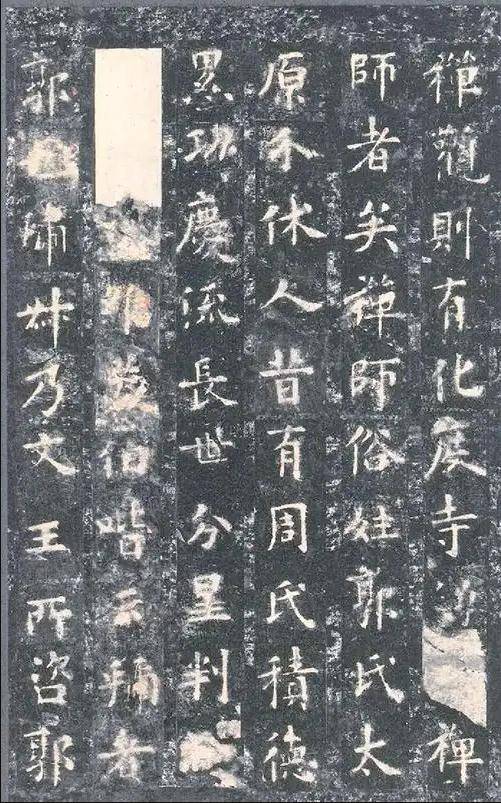 禪觀則有化度寺禪
師者矣禪師俗姓郭氏太
原介休人昔有周氏積德
累功慶流長世分星判
維蔡伯喈云虢者
郭也虢叔乃文王所咨郭